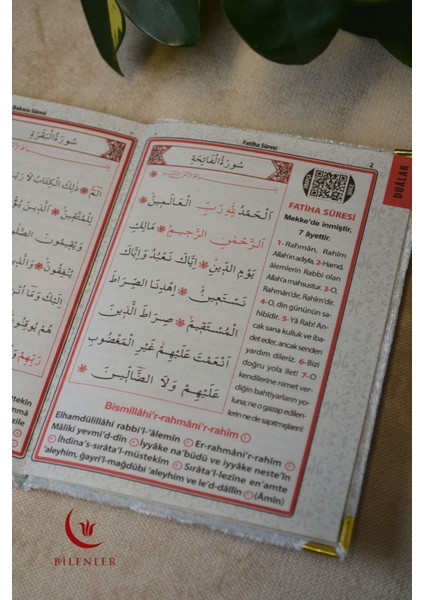 Bakara Sûresi
سُورَةُ الْبَقَرَةِ
الٓمٓ ۚ ذٰلِكَ الْكِتَابُ لَا رَيْبَ
لِلْمُتَّقِينَ
وَيُقِيمُونَ
يُنْفِقُونَ
اِلَيْكَ وَمَٓا
هُمْ يُوقِنُونَ
رَبِّهِمْ
Fatiha Sûresi
2
سُورَةُ الْفَاتِحَةِ
اَلْحَمْدُ لِلّٰهِ رَبِّ الْعَالَمِينَ
اَلرَّحْمٰنِ الرَّحِيمِ مَالِكِ
يَوْمِ الدِّينِ اِيَّاكَ نَعْبُدُ وَاِيَّاكَ
نَسْتَعِينُ اِهْدِنَا الصِّرَاطَ
الْمُسْتَقِيمَ صِرَاطَ الَّذِينَ
اَنْعَمْتَ عَلَيْهِمْ غَيْرِ الْمَغْضُوبِ
عَلَيْهِمْ وَلَا الضَّٓالِّينَ
FATİHA SÛRESİ
Mekke'de inmiştir,
7 âyettir.
1-Rahmân, Rahîm
Allah'ın adıyla. 2-Hamd,
âlemlerin Rabbi olan
Allah'a mahsustur. 3-O,
Rahmân'dır, Rahîm'dir.
4-O, din gününün sa-
hibidir. 5-Yâ Rab! An-
cak sana kulluk ve iba-
det eder, ancak senden
yardım dileriz. 6-Bizi
doğru yola ilet! 7-O
kendilerine nimet ver-
diğin bahtiyarların yo-
luna; ne o gazap edilen-
lerin ne de sapıtmışların!
DUÂLAR
Bismillâhi'r-rahmâni'r-rahîm ①
Elhamdülillâhi rabbi'l-'âlemîn ② Er-rahmâni'r-rahîm ③
Mâliki yevmi'd-dîn ④ İyyâke na'büdü ve iyyâke neste'în
⑤ İhdina's-sırâta'l-müstekîm ⑥ Sırâta'l-lezîne en'amte
'aleyhim, ğayri'l-mağdûbi 'aleyhim ve le'd-dâllîn ⑦ (Âmîn)
BİLENLER